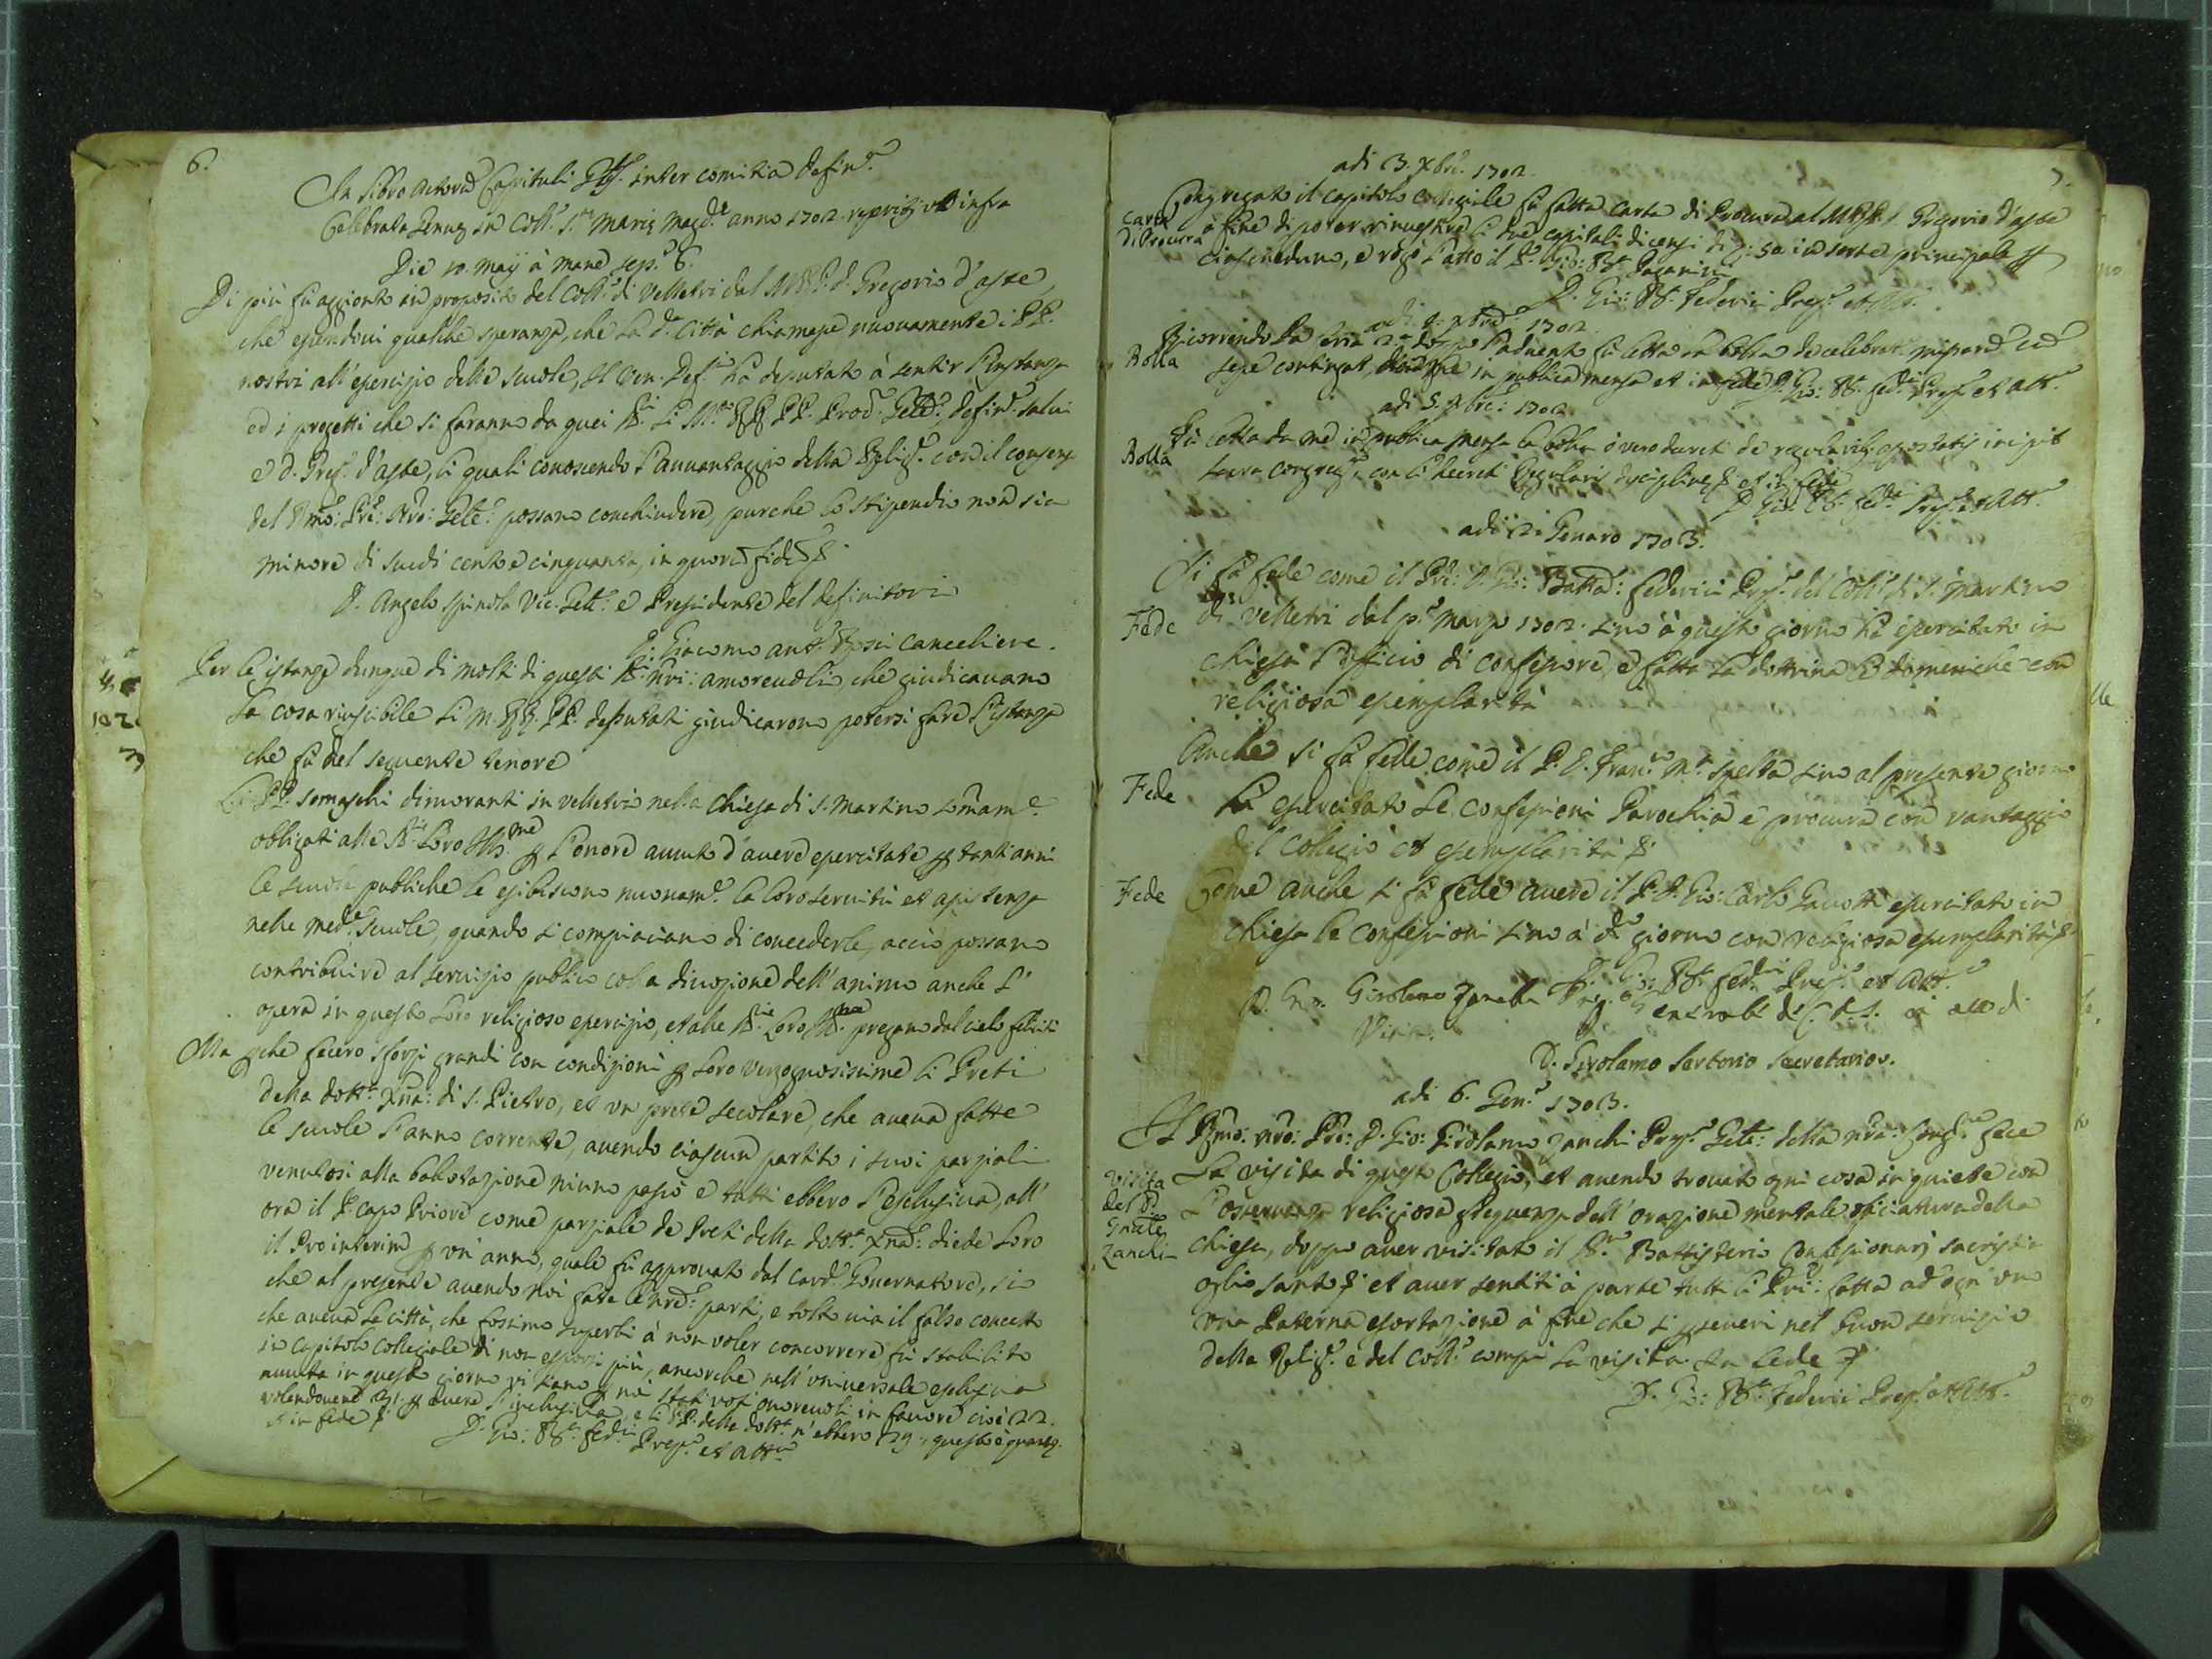 6.
In libro actorum Capituli Gñlis inter comitia Definˢ
Celebrata Genuę in Coll.º S.ᵗᵉ Marię Magd.ᵉ anno 1702.
Die 10. maij à mane sess.ᵉ 6.
Di più fù aggionto in proposito del Coll.º di Velletri dal M.R.P.D. Gregorio d'aste,
che essendoui qualche speranza, che la d.ª Città chiamasse nuouamente i PP.
nostri all'esercizio delle scuole, il Ven. Def.º hà deputato à sentir l'instanze
ed i progetti che si faranno da quei SS.ri li M.ti RR. PP. Proc.
e D. Greg.º d'aste, li quali conoscendo l'auuantaggio della Relig.ᵉ con il consenso
del Rmo: Pre: Nro: Gele: possano conchiudere, purche lo stipendio non sia
minore di scudi cento e cinquanta, in quorum fidem &
D. Angelo Spinola Vic. Gele: e Presidente del definitorio
D. Giacomo Ant.º Rossi Cancelliere.
Per le istanze dunque di molti di questi SS.ri nri: amoreuoli, che giudicauano
la cosa riuscibile li M. RR. PP. deputati giudicarono potersi fare l'istanza
che fù del seguente tenore
Li PP. somaschi dimoranti in velletri nella Chiesa di S. Martino sommam.ᵉ
obligati alle SS.rie Loro Ill.me per l'onore auuto d'auere esercitate per tanti anni
le scuole publiche le esibiscono nuouam.ᵉ la loro seruitù et assistenza
nelle med.ᵉ scuole, quando si compiaciano di concederle, acciò possano
contribuire al seruizio publico colla diuozione dell'animo anche l'
opera in questo loro religioso esercizio, et alle SS.rie Loro Ill.me pregano dal cielo felicità
Ma perche fecero sforzi grandi con condizioni per loro vergognosissime li Preti
della dott.ª Xna: di S. Pietro, et un prete secolare, che aueua fatte
le scuole l'anno corrente, auendo ciascun partito i suoi parziali
venutosi alla ballotazione niuno passò e tutti ebbero l'esclusiua, all'
ora il P.º capo Priore come parziale de Preti della dott.ª Xna: diede loro
il Prointerim per un'anno, quale fù approuato dal Card.ᵉ Gouernatore, si
che al presente auendo noi fatte le nre: parti, e tolto via il falso concetto
che aueua la città, che fossimo superbi à non voler concorrere, fù stabilito
in Capitolo Collegiale di non esporsi più, ancorche nell'vniuersale esclusiua
auuta in questo giorno vi siano per noi stati voti onoreuoli in fauore cioè 22.
volendouene 31. per auere l'inclusiua, e li PP. della dott.ª n'ebbero 29
et in fede &
D. Gio: Bta: Fed.ci Prep.º et Att.º
7.
adi 3. Xbre. 1702.
Carta
di Procura
Congregato il capitolo collegiale fù fatta carta di Procura al M.R.P.D. Gregorio d'aste
à fine di poter rinuestire li due capitali di censi di 50 in sorte principale
ciascheduno, e rogò l'atto il S.r Gio: Bta: Paganini
D. Gio: Bta: Federici Prep.º et Att.º
adi 4. Xbre 1702.
Bolla
Ricorrendo la feria 2.ª doppo l'aduento fù letta la bolla de celebrat. missarum
sepe contingat, in publica mensa et in fede D. Gio: Bta: Fed.ci Prep.º et Att.º
adi 5. Xbre: 1702.
Bolla
Fù letta da me in publica mensa la bolla ò vero decreti de regularibus apostatis incipit
sacra congreg.º, con li decreti Regularis disciplinę & et in fede
D. Gio: Bta: Fed.ci Prep.º et Att.º
adi 2 Genaro 1703.
Fede
Si fà fede come il Pre: D. Gio: Batta: Federici Prep.º del Coll.º di S. Martino
di Velletri dal p.º marzo 1702. sino à questo giorno hà esercitato in
chiesa l'officio di confessore, e fatta la dottrina le domeniche con
religiosa esemplarità
Fede
Anche si fà fede come il P. D. Fran.co M.ª Spelta sino al presente giorno
hà esercitato le confessioni Parochia e procura con vantaggio
del Collegio et esemplarità &
Fede
Come anche si fà fede auere il P. D. Gio: Carlo Gauotti esercitato in
chiesa le confessioni sino à d.º giorno con religiosa esemplarità &
D. Gio: Bta: Fed.ci Prep.º et Att.º
D. Gio: Girolamo Zanchi Prep. Generale d. C. d. S. in atto d.
Visita.
D. Girolamo Sartorio Secretario.
adi 6. Gen.º 1703.
Visita
del P.
Gnale
Zanchi
Il Rmo: nro: Pre: D. Gio: Girolamo Zanchi Prep.º Gele: della nra: Cong.ne fece
la visita di questo Collegio, et auendo trouato ogni cosa in quiete con
l'osseruanza religiosa frequenza dell'orazione mentale, oficiatura della
chiesa, doppo auer visitato il Battisterio Confessionarj sacristia
oglio santo & et auer sentiti à parte tutti li Pri: fatta ad ogn'uno
una Paterna esortazione à fine che si perseueri nel buon seruizio
della Relig.ᵉ e del Coll.º compì la visita. In fede &
D. Gio: Bta: Federici Prep.º et Att.º